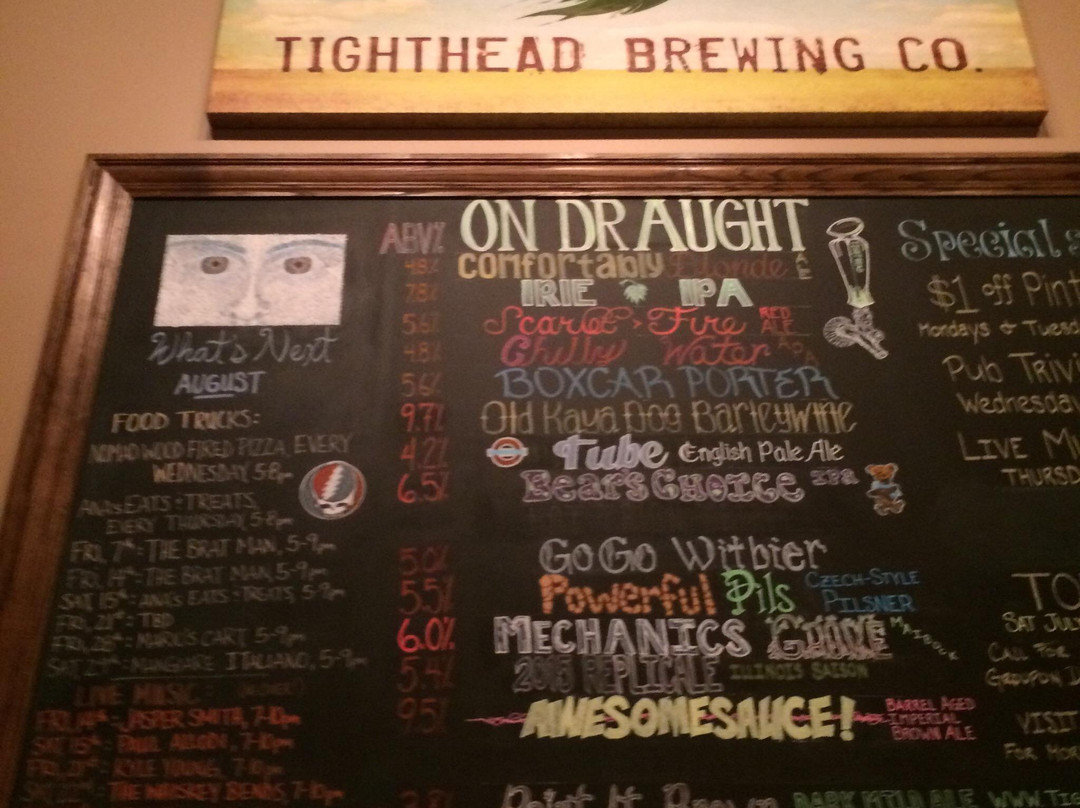 TIGHTHEAD BREWING CO.
What's Next
AUGUST
FOOD TRUCKS:
NOMAD WOOD FIRED PIZZA, EVERY
WEDNESDAY, 5-8pm
ANA'S EATS + TREATS,
EVERY THURSDAY, 5-8pm
FRI, 7th: THE BRAT MAN, 5-9pm
FRI, 14th: THE BRAT MAN, 5-9pm
SAT, 15th: ANA'S EATS + TREATS, 5-9pm
FRI, 21st: TBD
FRI, 28th: MARIO'S CART, 5-9pm
SAT, 29th: MANGIARE ITALIANO, 5-9pm
LIVE MUSIC:
FRI, 14th: JASPER SMITH, 7-10pm
SAT, 15th: PAUL 7-10pm
FRI, 21st: KYLE YOUNG, 7-10pm
SAT, 22nd: THE WHISKEY BENDS, 7-10pm
ABV% ON DRAUGHT
4.8% Comfortably Blonde ALE
7.8% IRIE IPA
5.6% Scarlet > Fire RED ALE
4.8% Chilly Water APA
5.6% BOXCAR PORTER
9.7% Old Kaya Dog Barleywine
4.2% Tube English Pale Ale
6.5% Bear's Choice IPA
5.0% GoGo Witbier
5.5% Powerful Pils CZECH-STYLE PILSNER
6.0% MECHANICS GUIDE MAIBOCK
5.4% 2015 REPLICALE ILLINOIS SAISON
9.5% AWESOMESAUCE! BARREL AGED IMPERIAL BROWN ALE
Paint It Brown DARK MILD ALE
Special
$1 off Pint
Mondays & Tuesd
Pub Trivi
Wednesday
LIVE MU
THURSD
TO
SAT JULY
CALL FOR
GROUPON
VISIT
FOR MOR
WWW.TIG